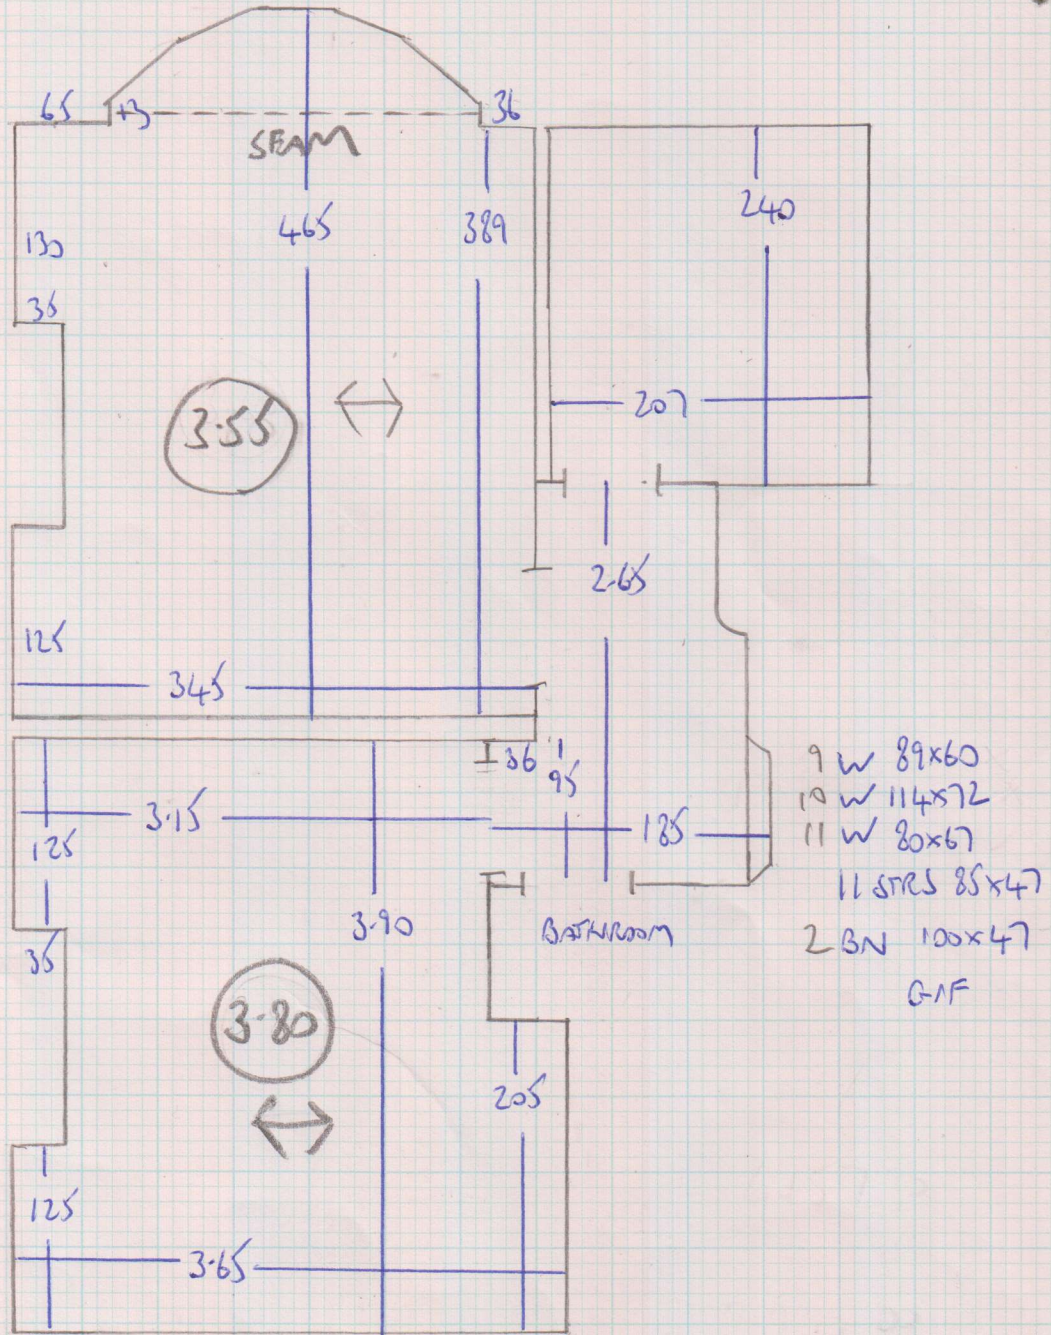 65
+3
36
SEAM
465
389
240
130
36
3.55
207
2.65
125
345
36
95
3.15
185
125
3.90
BATHROOM
35
3.80
205
125
3.65
9 W 89x60
10 W 114x72
11 W 80x67
11 STRS 85x47
2 BN 100x47